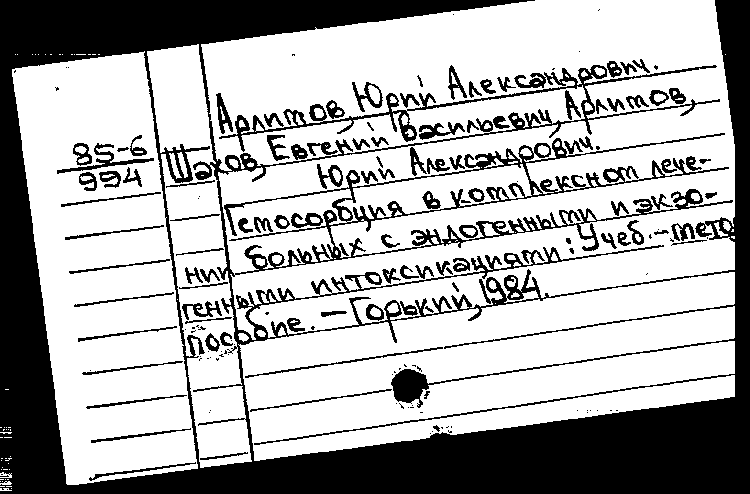 Арлитов, Юрий Александрович.
85-6
994
Шахов, Евгений Васильевич, Арлитов,
Юрий Александрович.
Гемосорбция в комплексном лече-
нии больных с эндогенными и экзо-
генными интоксикациями: Учеб.-метод
пособие. — Горький, 1984.